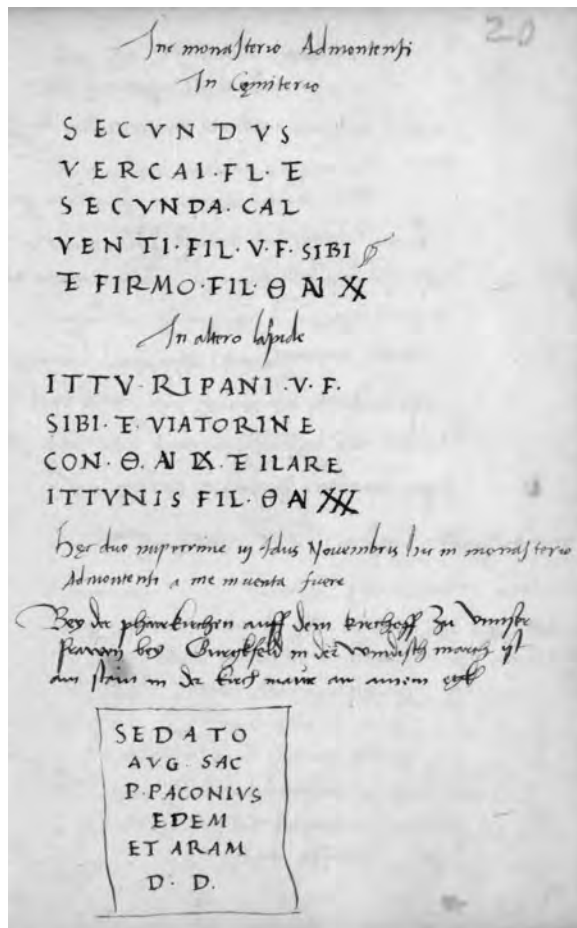 20
Inc monasterio Admontensi
In Cęmiterio
SECVNDVS
VERCAI·FL·E
SECVNDA·CAL
VENTI·FIL·V·F·SIBI
E FIRMO·FIL·Θ AN XX
In altero lapide
ITTV·RIPANI·V·F.
SIBI·E·VIATORINE
CON·Θ·AN IX·E ILARE
ITTVNIS FIL·Θ AN XXX
hęc duo nuperrime iij Idus Novembris hic in monasterio
Admontensi a me inventa fuere
Bey der pharrkirchen auff dem kirchoff zu unnser
frawen bey Gurgkfeld in der windisch march ist
ain stain in der kirch maur an ainem egk
SEDATO
AVG·SAC
P·PACONIVS
EDEM
ET ARAM
D·D.